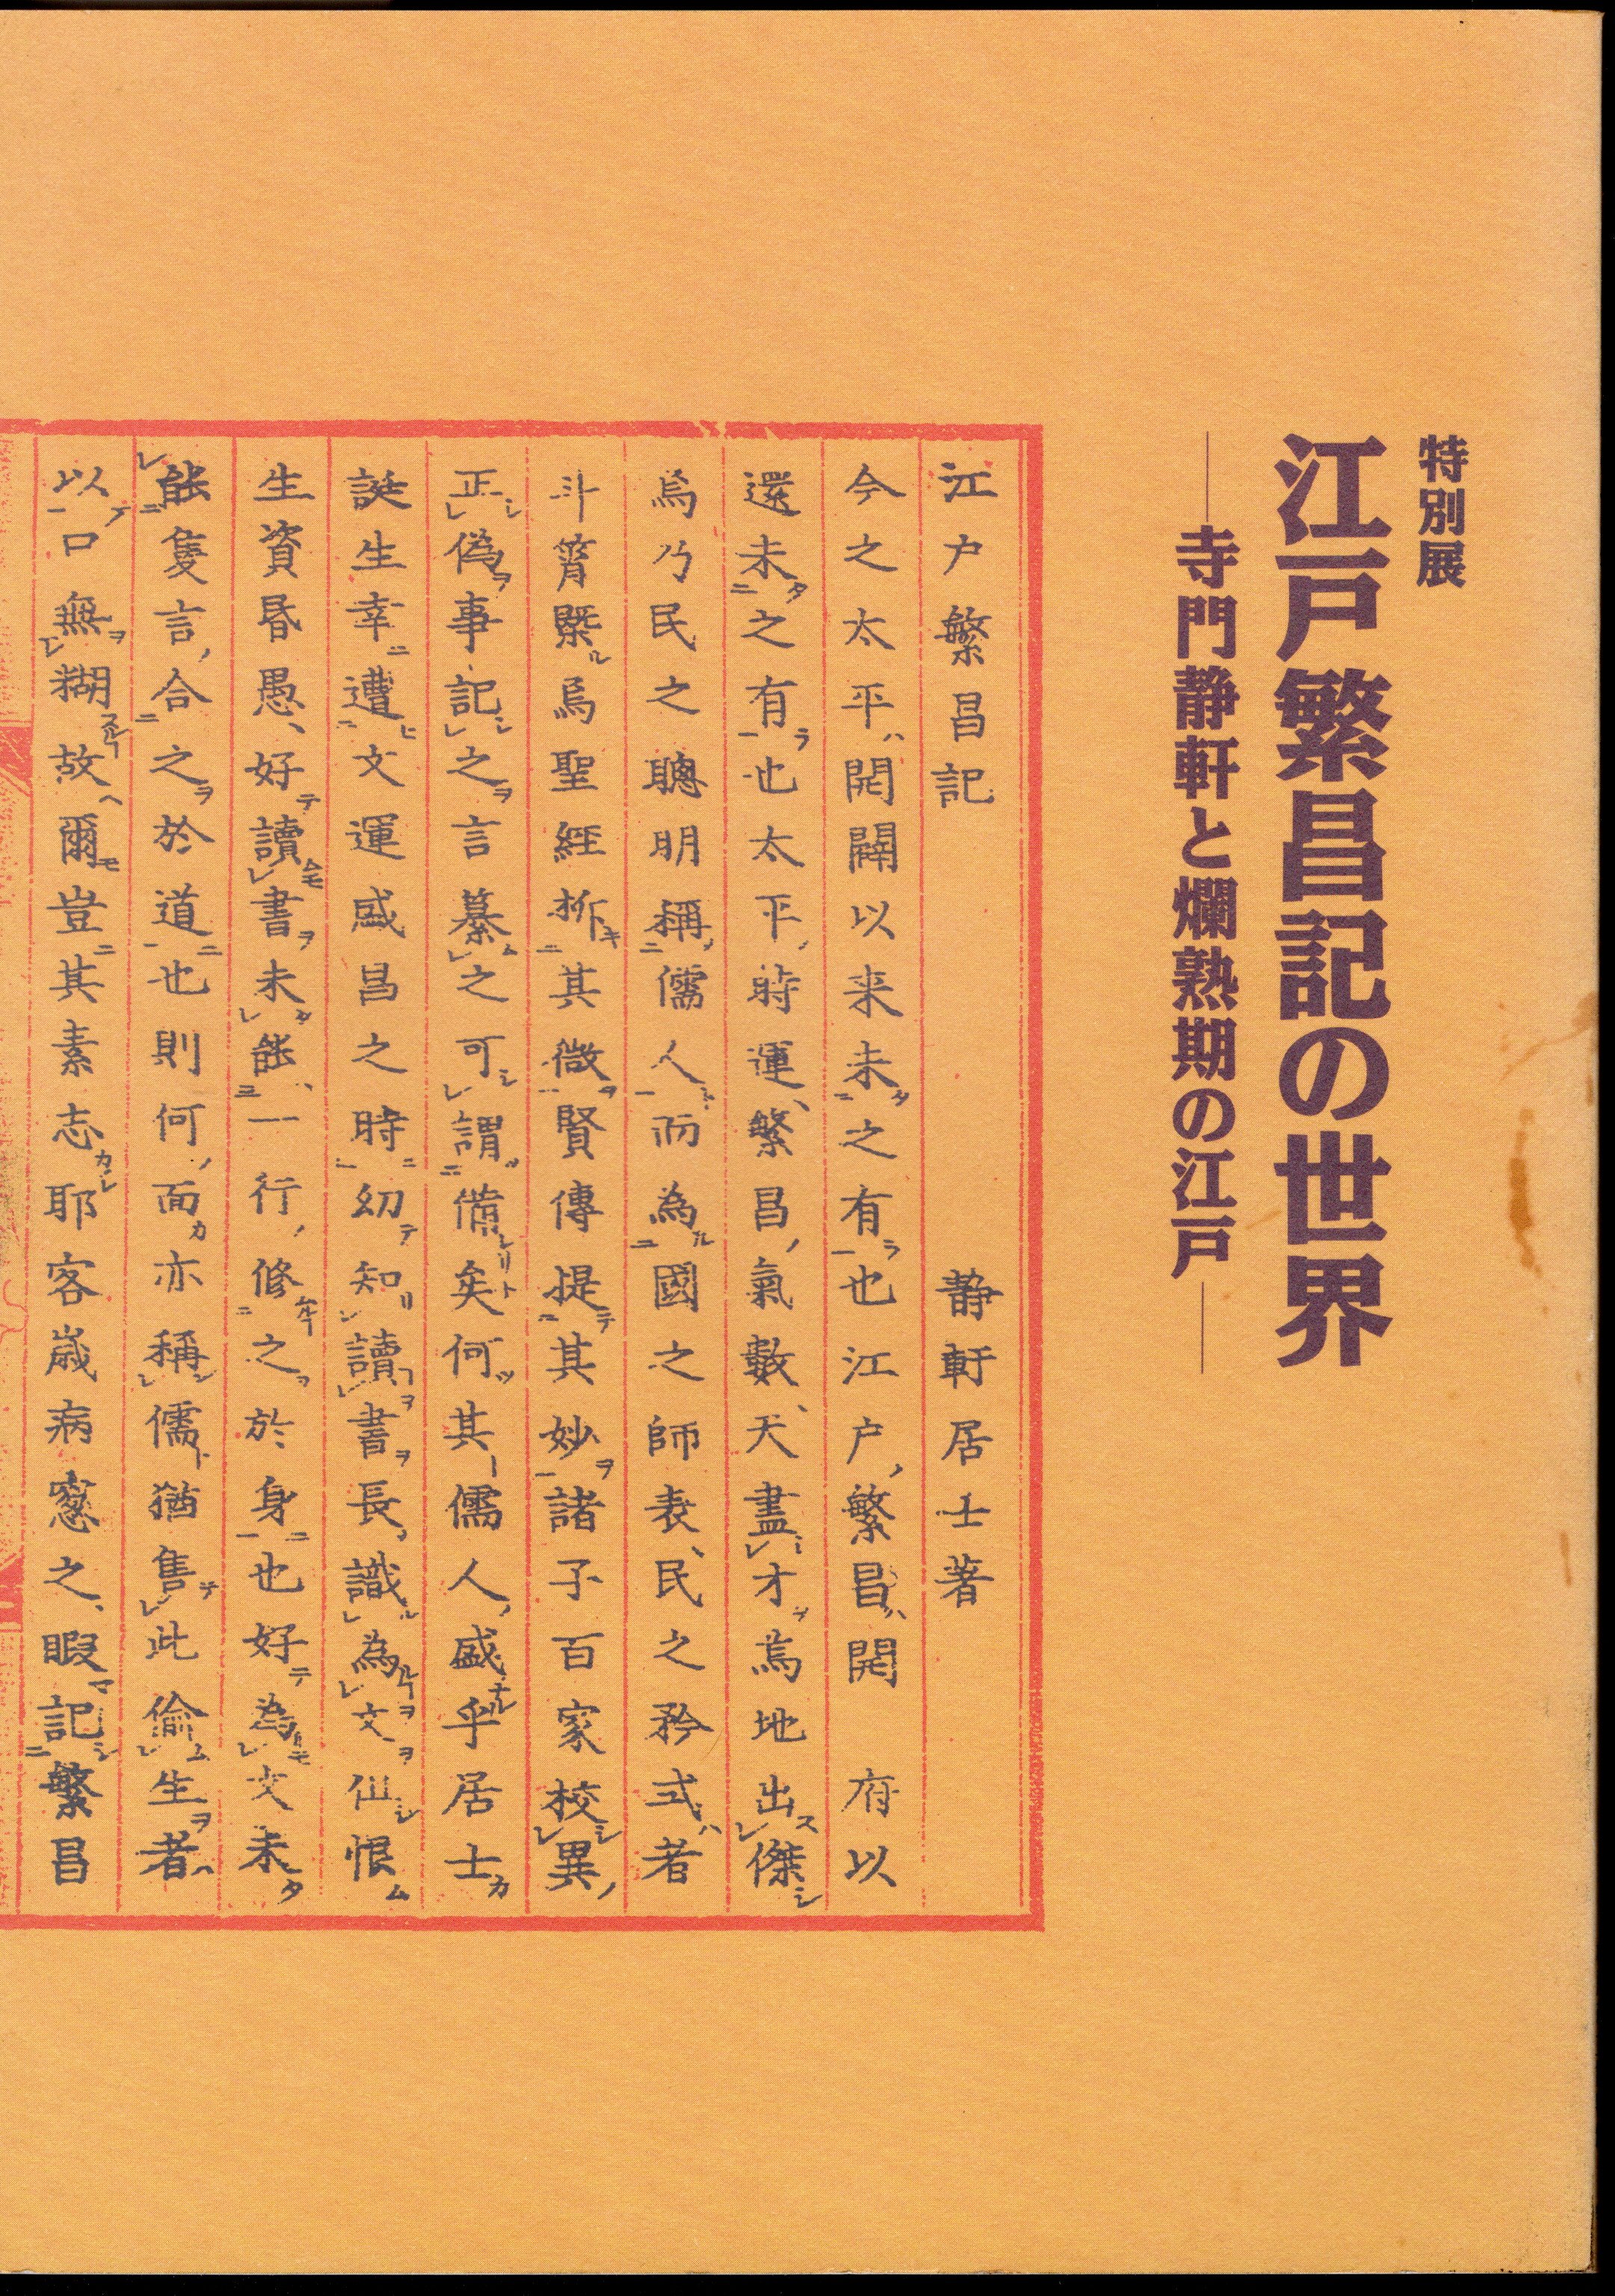 特別展
江戸繁昌記の世界
―寺門静軒と爛熟期の江戸―
江戸繁昌記 静軒居士著
今之太平、開闢以来未之有也江戸繁昌開 府以
還未之有也太平時運、繁昌氣數、天盡才焉地出傑
焉乃民之聰明稱儒人而為國之師表、民之矜式者
斗筲槩焉聖經析其微賢傳提其妙諸子百家校異
正偽事記之言纂之可謂備矣何其儒人盛乎居士
誕生幸遭文運盛昌之時幼知讀書長識為文但恨
生資昏愚、好讀書未能一行修之於身也好為文未
能隻言合之於道也則何面亦稱儒猶售此偷生者
以口無糊故爾豈其素志耶客歳病窓之暇記繁昌